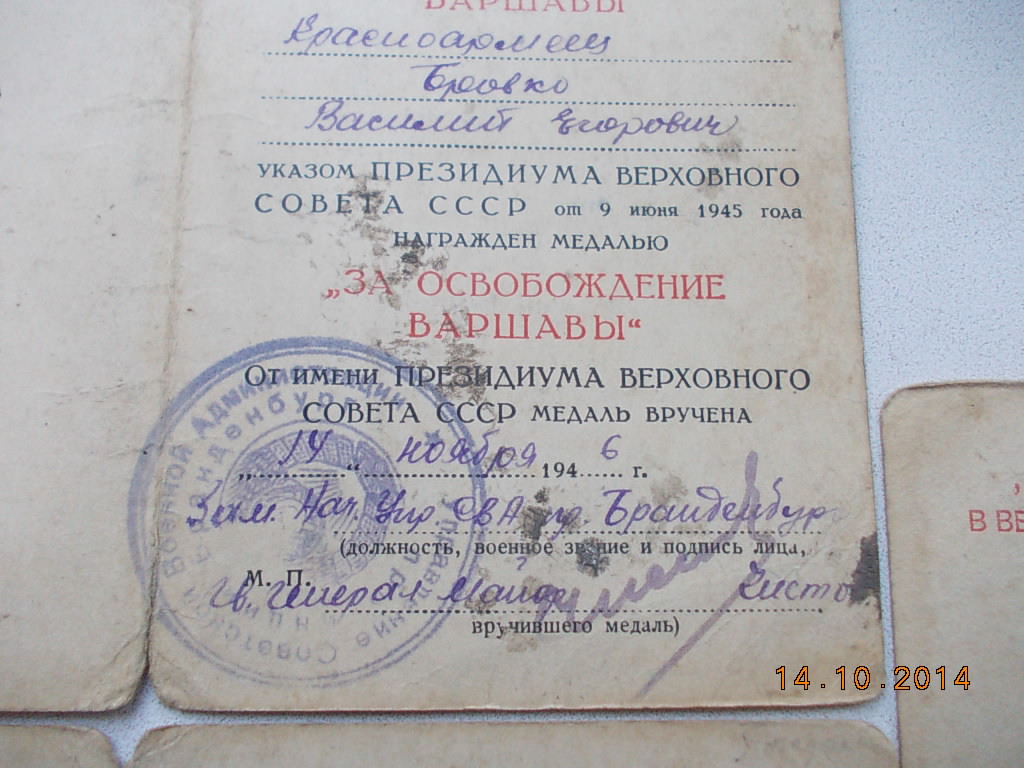 ВАРШАВЫ
Красноармеец
Бровко
Василий Егорович
УКАЗОМ ПРЕЗИДИУМА ВЕРХОВНОГО
СОВЕТА СССР от 9 июня 1945 года
НАГРАЖДЕН МЕДАЛЬЮ
„ЗА ОСВОБОЖДЕНИЕ
ВАРШАВЫ“
От имени ПРЕЗИДИУМА ВЕРХОВНОГО
СОВЕТА СССР МЕДАЛЬ ВРУЧЕНА
„14“ ноября 1946 г.
Зам. Нач. Упр СВА пр. Бранденбург
(должность, военное звание и подпись лица,
М. П.
Гв. Генерал Майор Чисто
вручившего медаль)
Управление Советской Военной Администрации
провинции Бранденбург
В ВЕ
14.10.2014